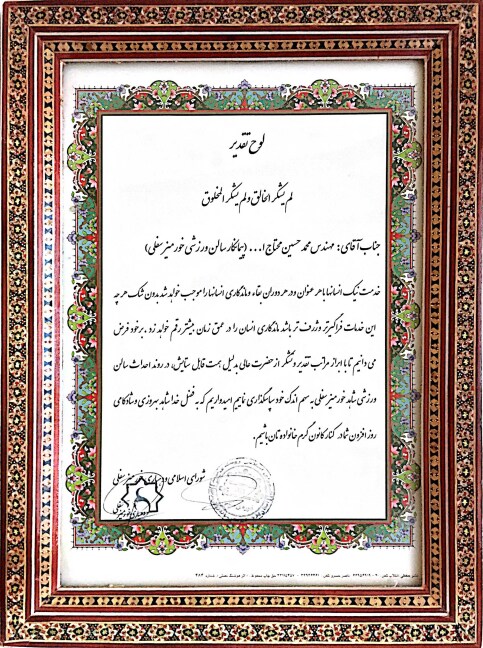 لوح تقدیر
لم یشکر الخالق و لم یشکر المخلوق
جناب آقای: مهندس محمد حسین محتاج ا... (پیمانکار سالن ورزشی خورمیز سفلی)
خدمت نیک انسانها با هر عنوان و در هر دوران بقاء و ماندگاری انسانها را موجب خواهد شد بدون شک هر چه
این خدمات فراگیرتر و ژرف تر باشد ماندگاری انسان را در عمق زمان بیشتر رقم خواهد زد. بر خود فرض
می دانیم تا با ابراز مراتب تقدیر و تشکر از حضرت عالی بدلیل همت قابل ستایش در روند احداث سالن
ورزشی شاهد خورمیز سفلی به سهم اندک خود سپاسگذاری نماییم امیدواریم که به فضل خدا شاهد بهروزی و شادکامی
روز افزون شما در کنار کانون گرم خانواده تان باشیم.
شورای اسلامی و دهیاری خورمیز سفلی